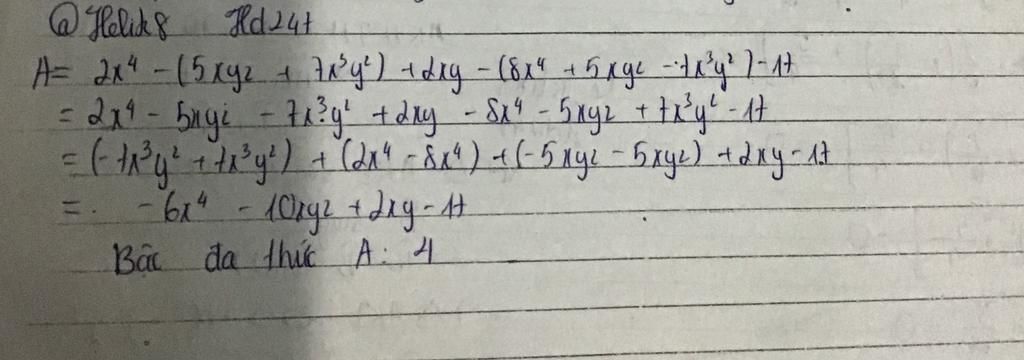 @Helik8 Hd247
A= 2x⁴ - (5xyz + 7x³y²) + 2xy - (8x⁴ + 5xyz - 7x³y²) - 17
= 2x⁴ - 5xyz - 7x³y² + 2xy - 8x⁴ - 5xyz + 7x³y² - 17
= (-7x³y² + 7x³y²) + (2x⁴ - 8x⁴) + (-5xyz - 5xyz) + 2xy - 17
= -6x⁴ - 10xyz + 2xy - 17
Bậc đa thức A: 4